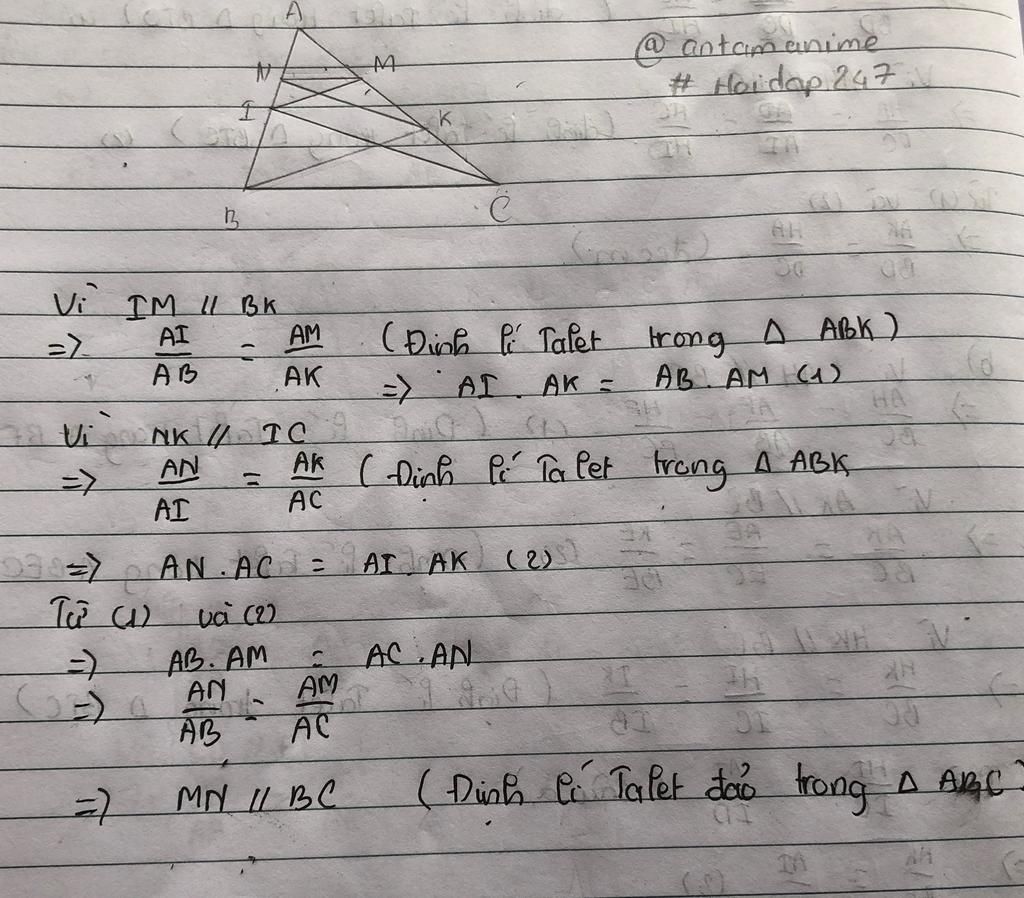 A
N
M
I
K
B
C
@ antamanime
# Hoidap 247
Vì IM // BK
=> AI/AB = AM/AK (Định lí Talet trong Δ ABK)
=> AI . AK = AB . AM (1)
Vì NK // IC
=> AN/AI = AK/AC (Định lí Talet trong Δ ABK
=> AN . AC = AI . AK (2)
Từ (1) và (2)
=> AB . AM = AC . AN
=> AN/AB = AM/AC
=> MN // BC (Định lí Talet đảo trong Δ ABC)